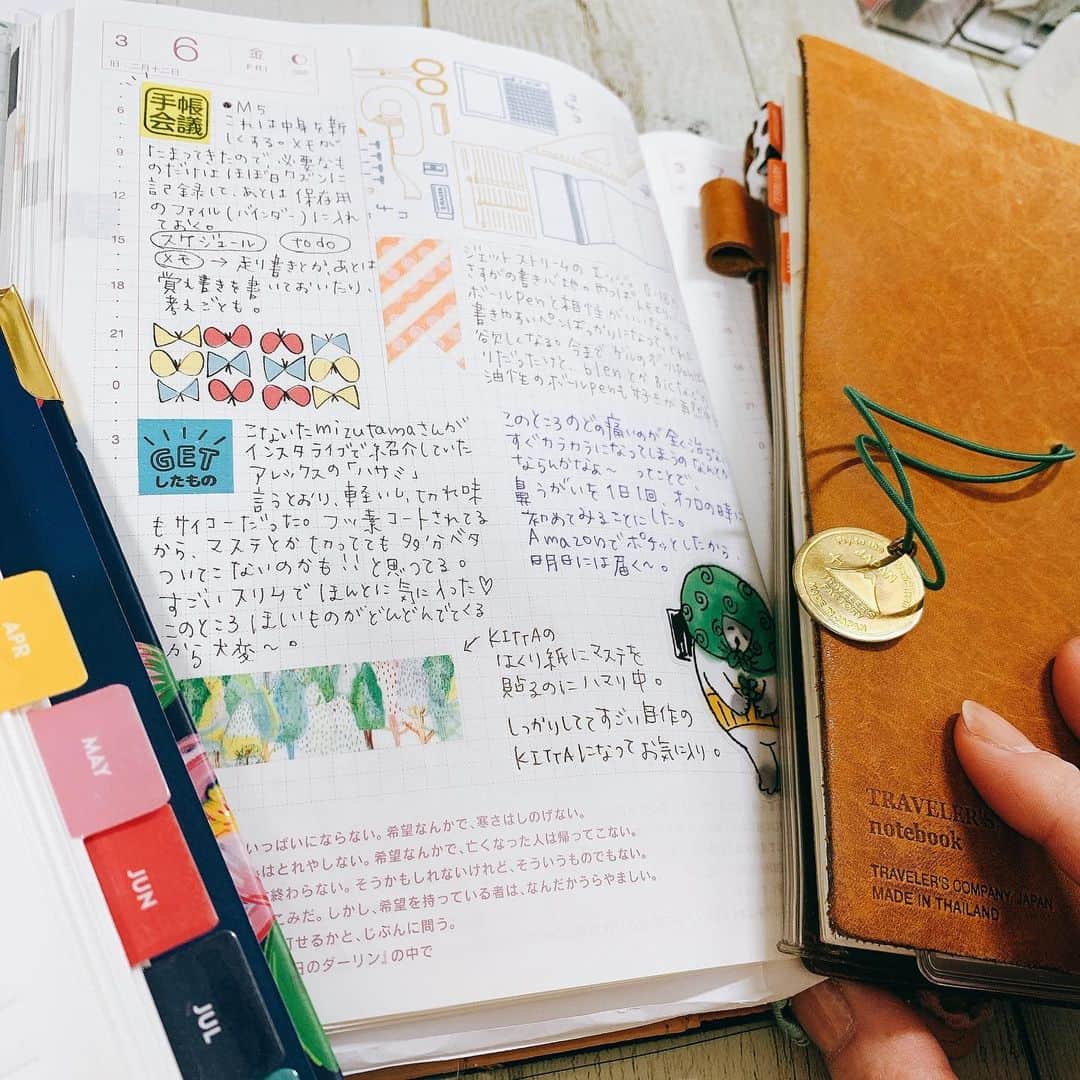 3
6
金
FRI
旧・二月十二日
6
9
12
15
21
0
3
手帳
会議
•M5
これは中身を新
しくする。メモが
たまってきたので、必要なも
のだけはほぼ日カズンに
記録して、あとは保存用
のファイル(バインダー)に入れ
ておく。
スケジュール todo
メモ → 走り書きとか、あとは
覚え書きを書いておいたり、
考えごとも。
ジェットストリームの
さすがの書き心地
ボールpenと相性がいい
書きやすいペンばっかりになって
欲しくなる。今まで ゲルのボールpen
りだったけど、blenとか Bicなど
油性のボールpenも好き
GET
したもの
こないたmizutamaさんが
インスタライブで紹介していた
アレックスの「ハサミ」
言うとおり、軽いし、切れ味
もサイコーだった。フッ素コートされてる
から、マステとか切ってても多分ベタ
ついてこないのかも!!と思ってる。
すごいスリムでほんとに気に入った♡
このところほしいものがどんどんでてくる
から大変〜。
このところのどの痛いのが全く治らない
すぐカラカラになってしまうのなんとか
ならんかなぁ〜 ってことで、
鼻うがいを1日1回、オフロの時に
初めてみることにした。
Amazonでポチッとしたから、
明日には届く〜。
KITTAの
はくり紙にマステを
貼るのにハマり中。
しっかりしててすごい自作の
KITTAになってお気に入り。
いっぱいにならない。希望なんかで、寒さはしのげない。
はとれやしない。希望なんかで、亡くなった人は帰ってこない。
終わらない。そうかもしれないけれど、そういうものでもない。
こみだ。しかし、希望を持っている者は、なんだかうらやましい。
せるかと、じぶんに問う。
日のダーリン』の中で
APR
MAY
JUN
JUL
TRAVELER'S
notebook
TRAVELER'S COMPANY, JAPAN
MADE IN THAILAND